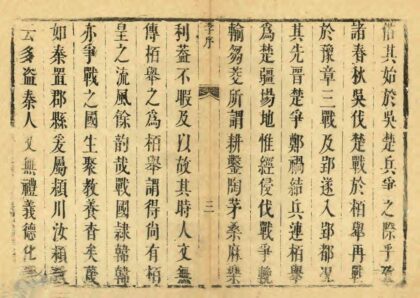 其始於吳楚兵爭之際乎
諸春秋吳伐楚戰於栢舉再戰
於豫章三戰及郢遂入郢都
其先晉楚爭鄭禍結兵連栢舉
為楚疆場地惟經侵伐戰爭輓
輸芻茭所謂耕鑿陶茅桑麻樂
李序
利蓋不暇及以故其時人文無
傳栢舉之為栢舉謂得尚有栢
皇之流風餘韵哉戰國隸韓韓
亦爭戰之國生聚教養杳矣
如秦置郡縣爰屬潁川汝潁
云多盜秦人又無禮義德化